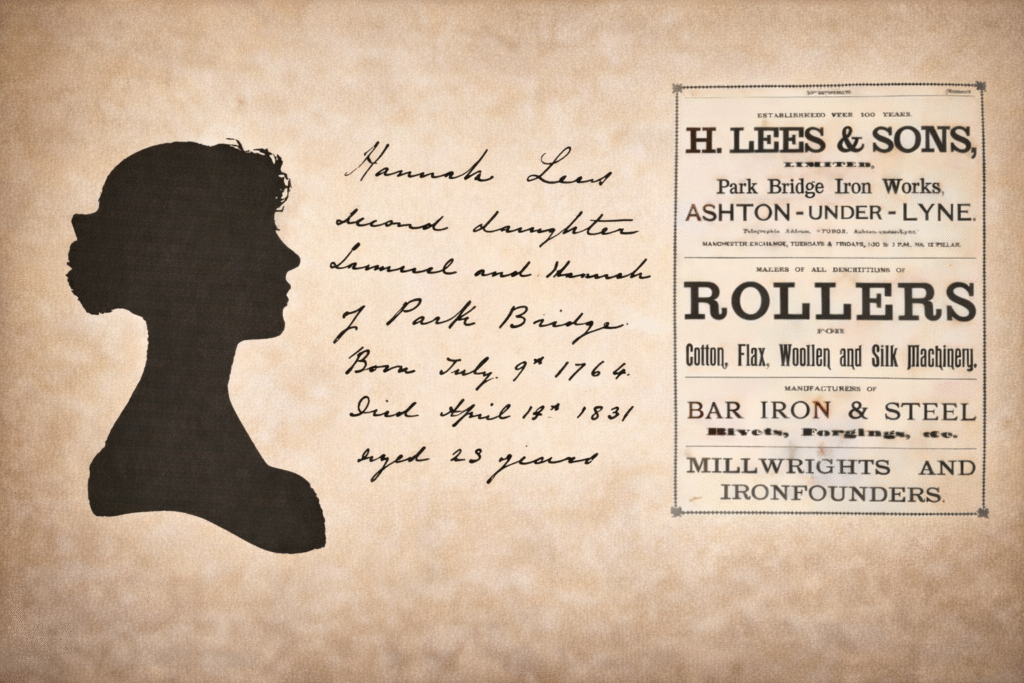 Hannah Lees
second daughter
Samuel and Hannah
of Park Bridge
Born July. 9th 1764.
Died April 14th 1831
aged 23 years
ESTABLISHED OVER 100 YEARS.
H. LEES & SONS,
LIMITED,
Park Bridge Iron Works,
ASHTON-UNDER-LYNE.
Telegraphic Address, "FORGE, Ashton-under-Lyne."
MANCHESTER EXCHANGE, TUESDAYS & FRIDAYS, 1:30 to 3 P.M. No. 12 PILLAR.
MAKERS OF ALL DESCRIPTIONS OF
ROLLERS
FOR
Cotton, Flax, Woollen and Silk Machinery.
MANUFACTURERS OF
BAR IRON & STEEL
Rivets, Forgings, etc.
MILLWRIGHTS AND
IRONFOUNDERS.